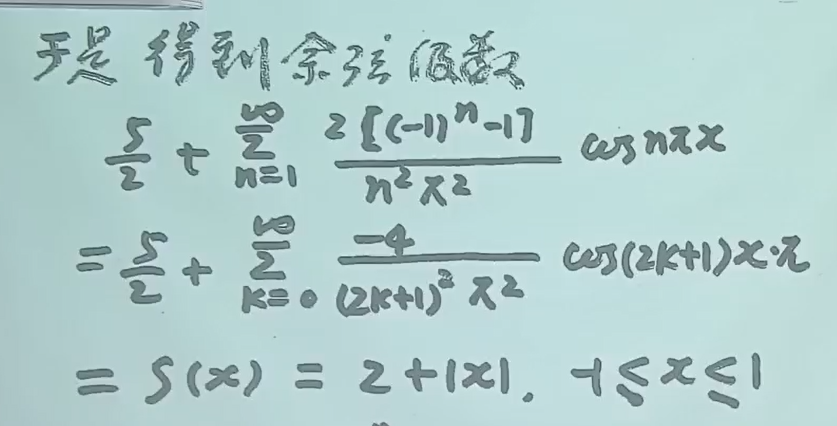 于是得到余弦级数
5/2 + ∑_{n=1}^{∞} 2[(-1)^n-1]/(n²π²) cos nπx
= 5/2 + ∑_{k=0}^{∞} -4/((2k+1)²π²) cos(2k+1)x·π
= S(x) = 2+|x|, -1≤x≤1